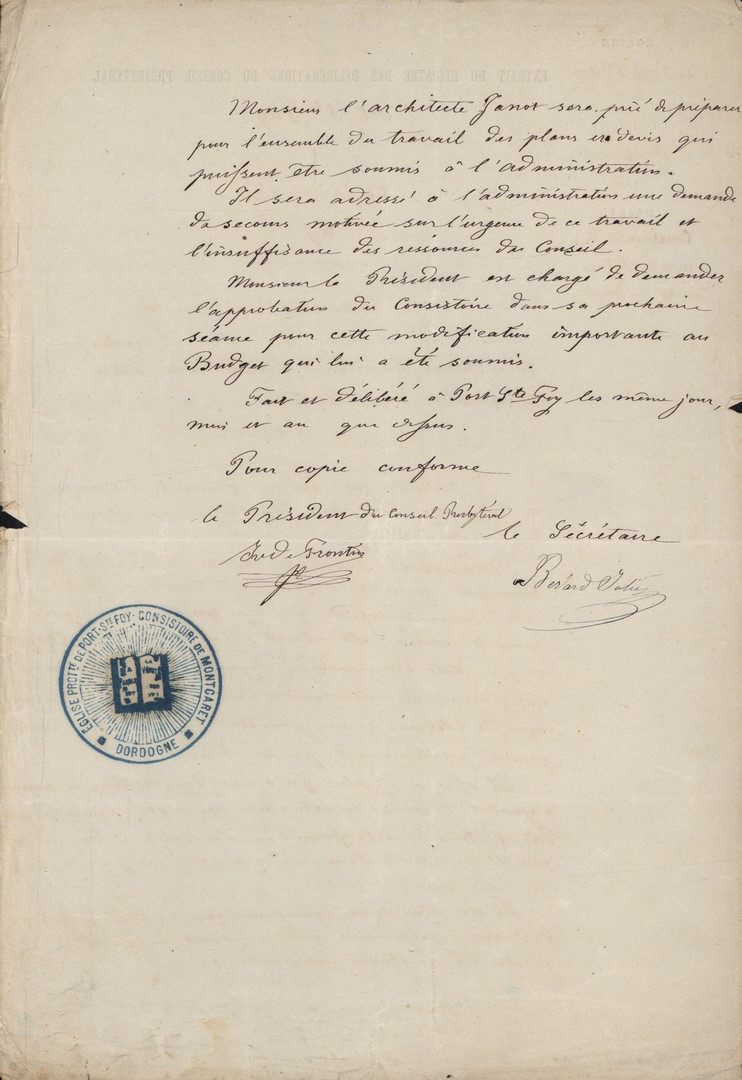 Monsieur l'architecte Janot sera prié de préparer
pour l'ensemble du travail des plans et devis qui
puissent être soumis à l'administration.
Il sera adressé à l'administration une demande
de secours motivée sur l'urgence de ce travail et
l'insuffisance des ressources du Conseil.
Monsieur le Président est chargé de demander
l'approbation du Consistoire dans sa prochaine
séance pour cette modification importante au
Budget qui lui a été soumis.
Fait et délibéré à Port Ste Foy les même jour,
mois et an que dessus.
Pour copie conforme
le Président du Conseil Presbytéral
le Sécrétaire
EGLISE PROTTE DE PORT-STE FOY - CONSISTOIRE DE MONTCARET
DORDOGNE
EXTRAIT DU REGISTRE DES DÉLIBÉRATIONS DU CONSEIL PRESBYTÉRAL